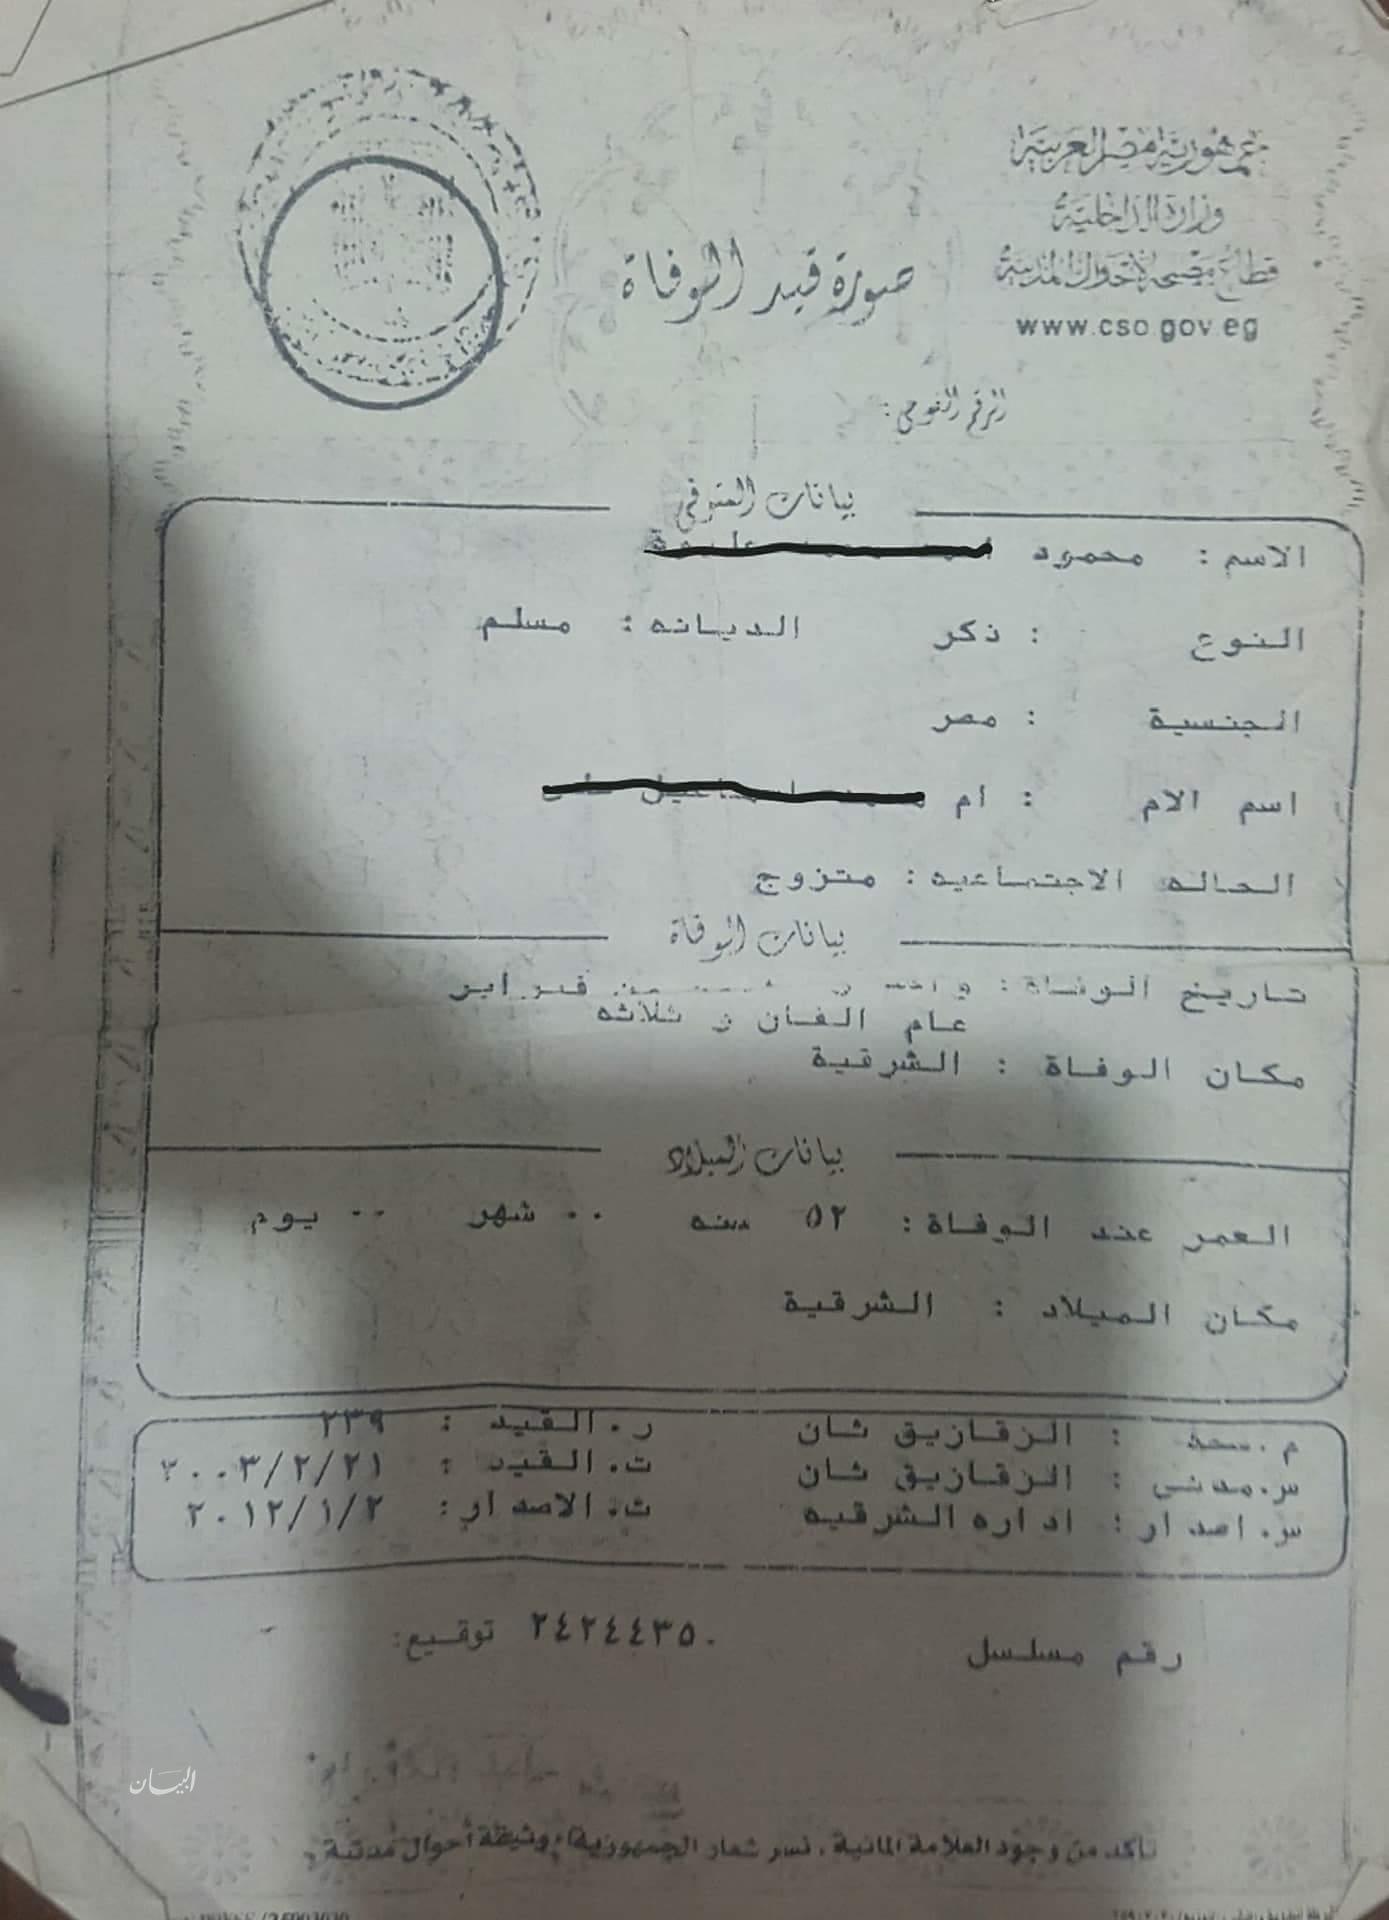 جمهورية مصر العربية
وزارة الداخلية
قطاع مصلحة الأحوال المدنية
www.cso.gov.eg
صورة قيد الوفاة
الرقم القومي :
بيانات المتوفى
الاسم : محمود
النوع : ذكر الديانه : مسلم
الجنسية : مصر
اسم الام : ام
الحاله الاجتماعيه : متزوج
بيانات الوفاة
تاريخ الوفاة : من فبراير
عام الفان و ثلاثه
مكان الوفاة : الشرقية
بيانات الميلاد
العمر عند الوفاة : ٥٢ سنه ٠٠ شهر ٠٠ يوم
مكان الميلاد : الشرقية
م.صحه : الزقازيق ثان ر.القيد : ٢٣٩
س.مدنى : الزقازيق ثان ت.القيد : ٢٠٠٣/٢/٢١
س.اصدار : اداره الشرقيه ت.الاصدار : ٢٠١٢/١/٢
رقم مسلسل ٢٤٢٤٤٣٥٠ توقيع:
البيان
تأكد من وجود العلامة المائية ، نسر شعار الجمهورية ، وثيقة أحوال مدنية ،